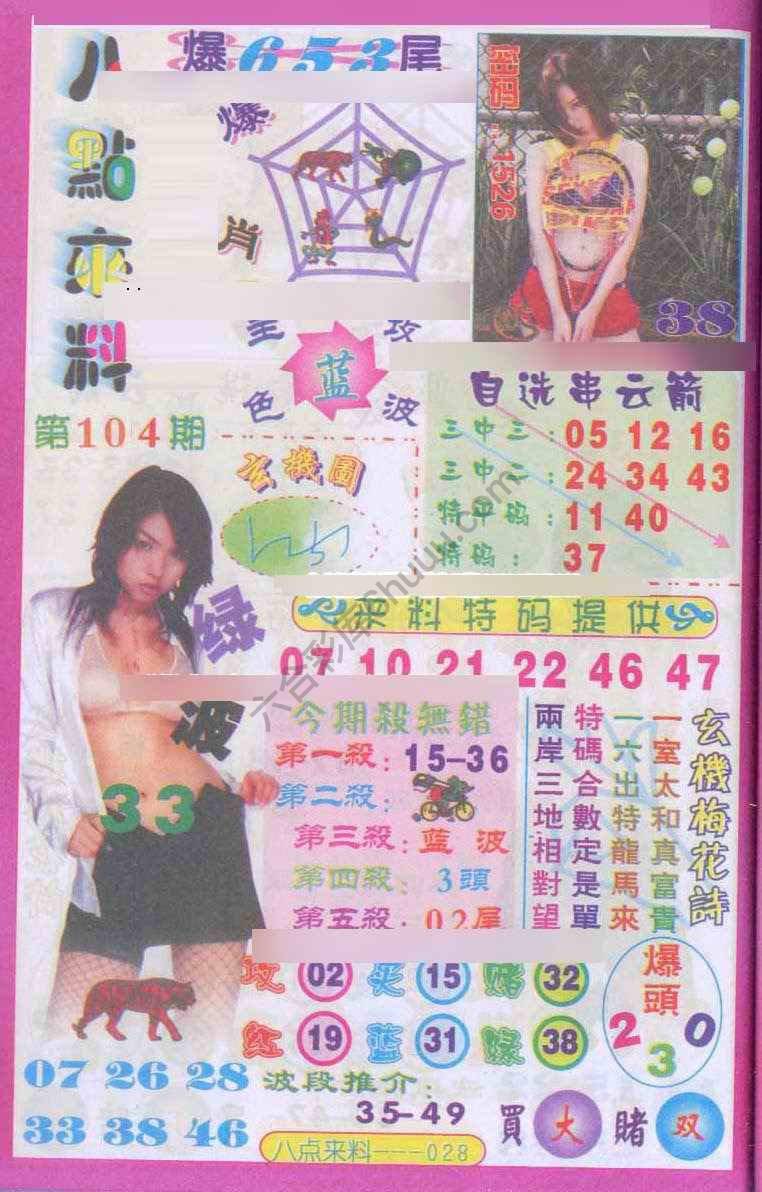 八點來料
爆653尾
爆
肖
1526
38
色
攻
波
蓝
第104期
玄機圖
自选串云箭
三中三：05 12 16
三中二：24 34 43
特中码：11 40
特码：37
绿波
33
来料特码提供
07 10 21 22 46 47
今期殺無錯
第一殺：15-36
第二殺：
第三殺：蓝波
第四殺：3頭
第五殺：02尾
玄機梅花詩
一室太和真富貴
一六出特龍馬來
特碼合數定是單
兩岸三地相對望
攻 02 买 15 赌 32
红 19 蓝 31 绿 38
爆頭
2 3 0
07 26 28
33 38 46
波段推介：
35-49
買大賭双
八点来料---028
六合彩库6huuu.com